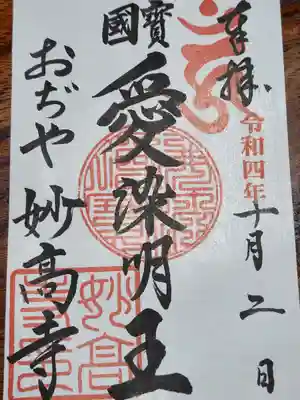 奉拝
令和四年十月二日
國寳
愛染明王
おぢや 妙高寺
妙高